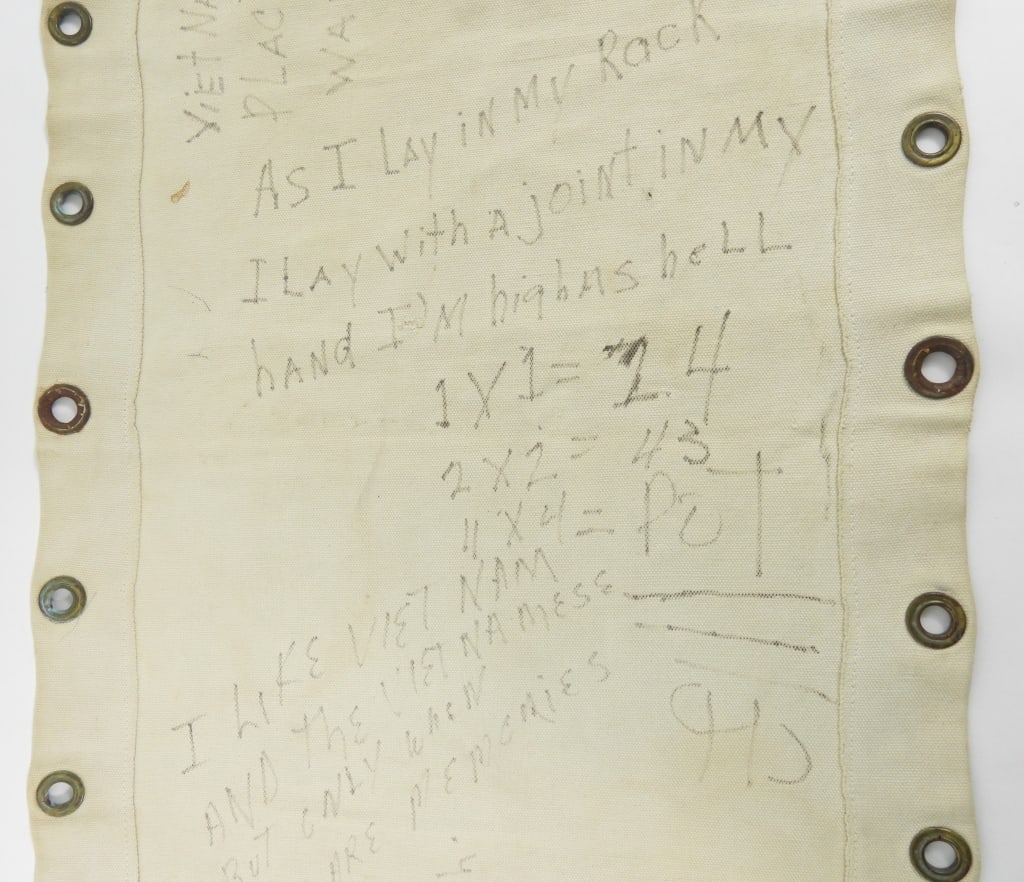 VIETNA
PLAC
WA
AS I LAY iN MY Rack
I LAY With A joiNT iN MY
hANd I'M high as hell
1 X 1 = 24
2 X 2 = 43
4 X 4 = POT
I LIKE VIET NAM
AND THE VIET NAMESE
BUT ONLY WHEN
ARE MEMORIES